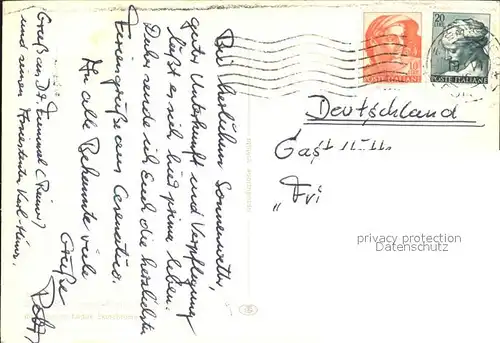 Bei herlichem Sonnenwetter,
guter Unterkunft und Verpflegung
läßt es sich hier prima leben.
Daher sende ich Euch die herzlichsten
Feriengrüße aus Cesenatico.
An alle Bekannte viele
Grüße
Gruß an
und seinen Assistenten Karl-Heinz.
20
LIRE
POSTE ITALIANE
10
POSTE ITALIANE
Deutschland
Gast
"Fri
privacy protection
Datenschutz